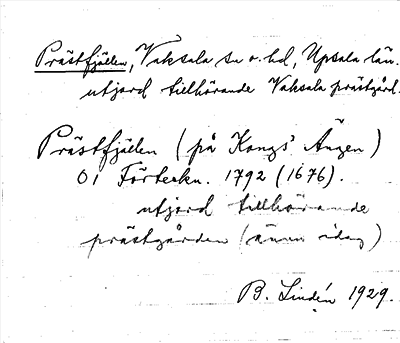 Prästfjällen, Vaksala sn o. hd, Upsala län.
utjord tillhörande Vaksala prästgård.
Prästfjällen (på Kongs' Ängen)
O1 Förteckn. 1792 (1676).
utjord tillhörande
prästgården (ännu idag)
B. Lindén 1929.